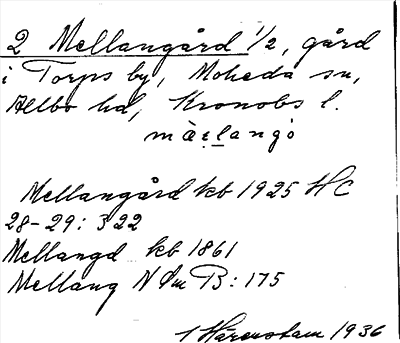 2 Mellangård 1/2, gård
i Torps by, Moheda sn,
Allbo hd, Kronobs l.
màɛl̲angó
Mellangård kb 1925 HC
28-29: 322
Mellangd kb 1861
Mellang N Øm B: 175
Härenstam 1936